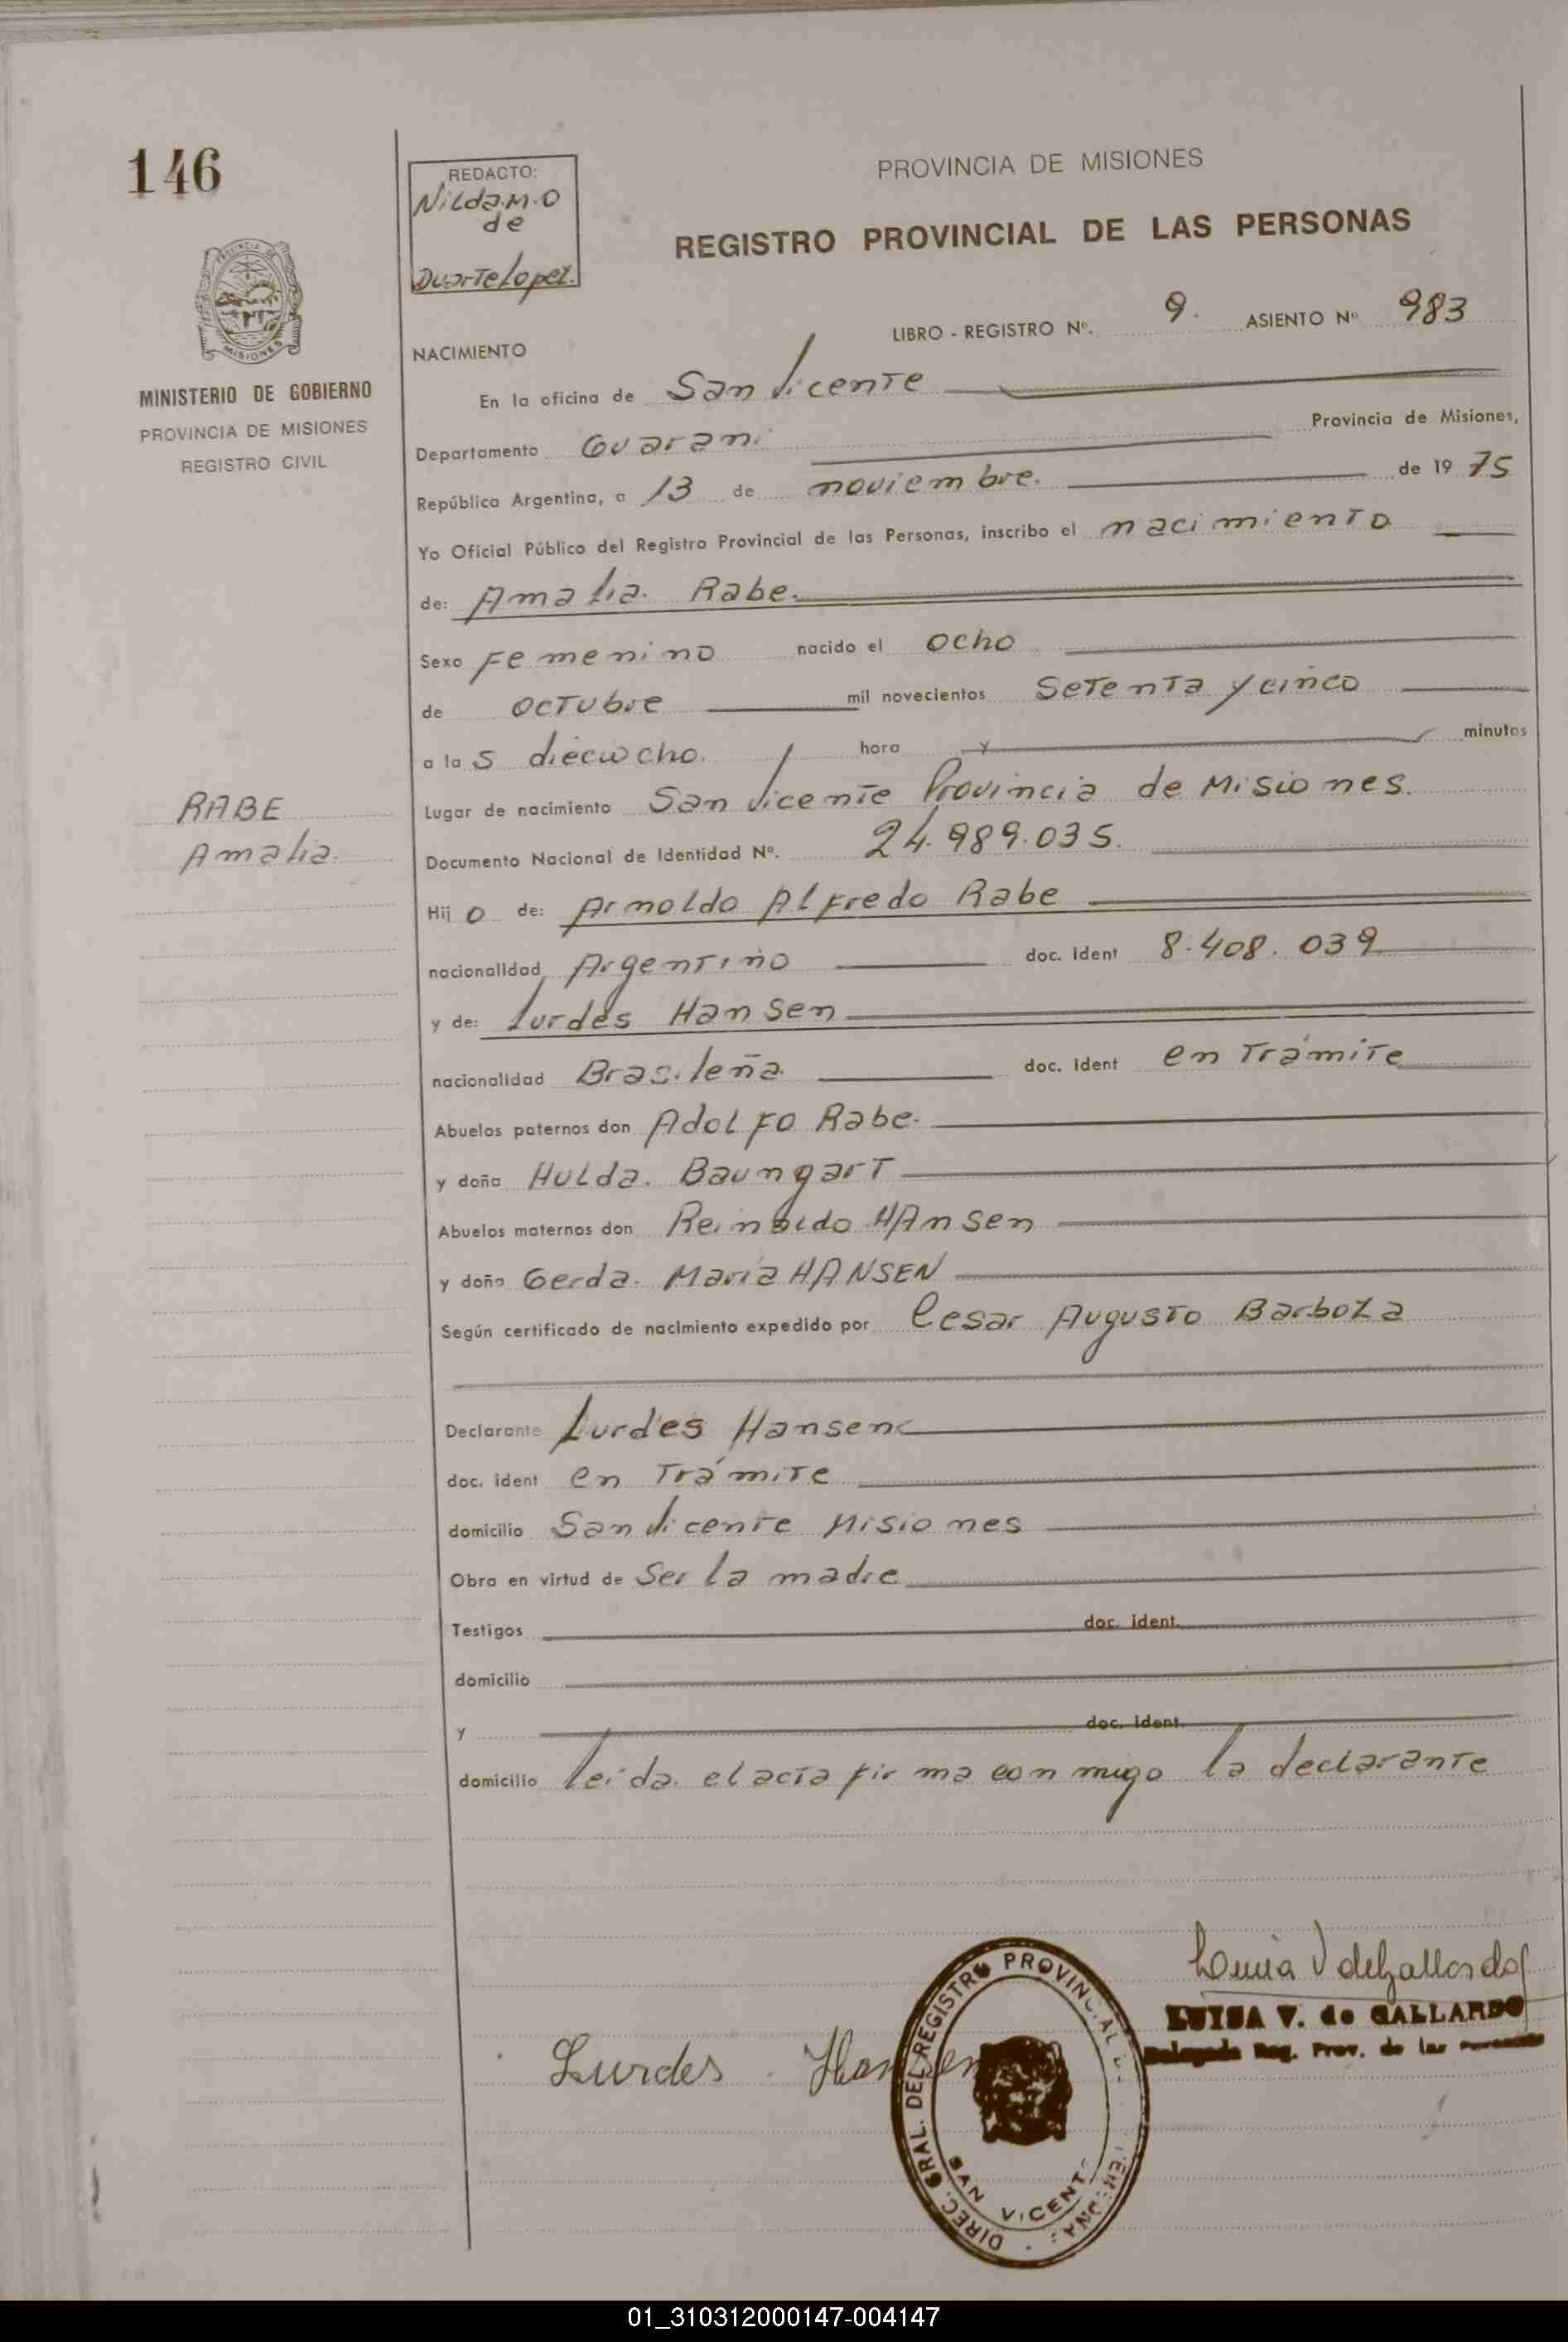 146
REDACTO:
Nilda.M.O
de
Duarte Lopez.
PROVINCIA DE MISIONES
REGISTRO PROVINCIAL DE LAS PERSONAS
LIBRO - REGISTRO Nº. 9. ASIENTO Nº 983
PROVINCIA DE
MISIONES
MINISTERIO DE GOBIERNO
PROVINCIA DE MISIONES
REGISTRO CIVIL
NACIMIENTO
En la oficina de San Vicente
Departamento Guarani Provincia de Misiones,
República Argentina, a 13 de noviembre. de 19 75
Yo Oficial Público del Registro Provincial de las Personas, inscribo el nacimiento
de: Amalia. Rabe.
Sexo Femenino nacido el ocho
de octubre mil novecientos setenta y cinco
a la s dieciocho. hora y minutos
Lugar de nacimiento San Vicente Provincia de Misiones.
RABE
Amalia.
Documento Nacional de Identidad Nº. 24.989.035.
Hij o de: Arnoldo Alfredo Rabe
nacionalidad Argentino doc. ident 8.408.039
y de: Lurdes Hansen
nacionalidad Brasileña doc. ident en trámite
Abuelos paternos don Adolfo Rabe.
y doña Hulda. Baungart
Abuelos maternos don Reinoldo HAnsen
y doña Gerda. María HANSEN
Según certificado de nacimiento expedido por Cesar Augusto Barboza
Declarante Lurdes Hansen
doc. ident en trámite
domicilio San Vicente Misiones
Obra en virtud de ser la madre
Testigos doc. ident.
domicilio
y doc. ident.
domicilio leida el acta firma con migo la declarante
Lurdes Hansen
DIREC. GRAL. DEL REGISTRO PROVINCIAL
SAN VICENTE
LUISA V. de GALLARDO
Delegada Reg. Prov. de las Personas
01_310312000147-004147